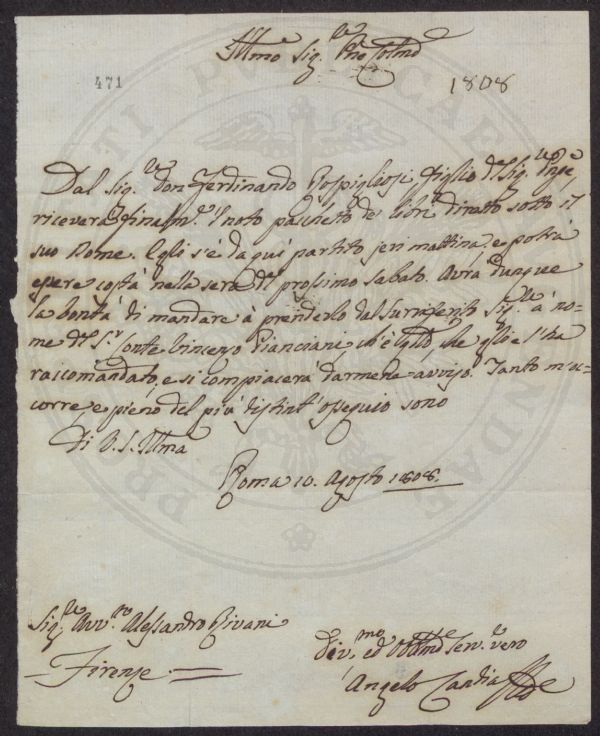 Illmo Sig.re Pne Colmo
471
1808
Dal Sig.r don Ferdinando Rospigliosi figlio del Sig.re Pnpe,
riceverà finalm.e il noto pachetto de' libri diretto sotto il
suo Nome. Egli s'è da quì partito jeri mattina, e potrà
essere costà nella sera del prossimo Sabato. Avrà dunque
la bontà di mandare à prenderlo dal surriferito Sig.re à no-
me del S.r Conte Vincenzo Pianciani, ch'è quello, che glie l'ha
raccomandato, e si compiacerà darmene avviso. Tanto m'oc-
corre, e pieno del più distint'ossequio sono
Di V. S. Illma
Roma 10. Agosto 1808.
Sig.re Avv.to Alessandro Rivani
Firenze
Div.mo ed Obblmo Serv.re vero
Angelo Candia